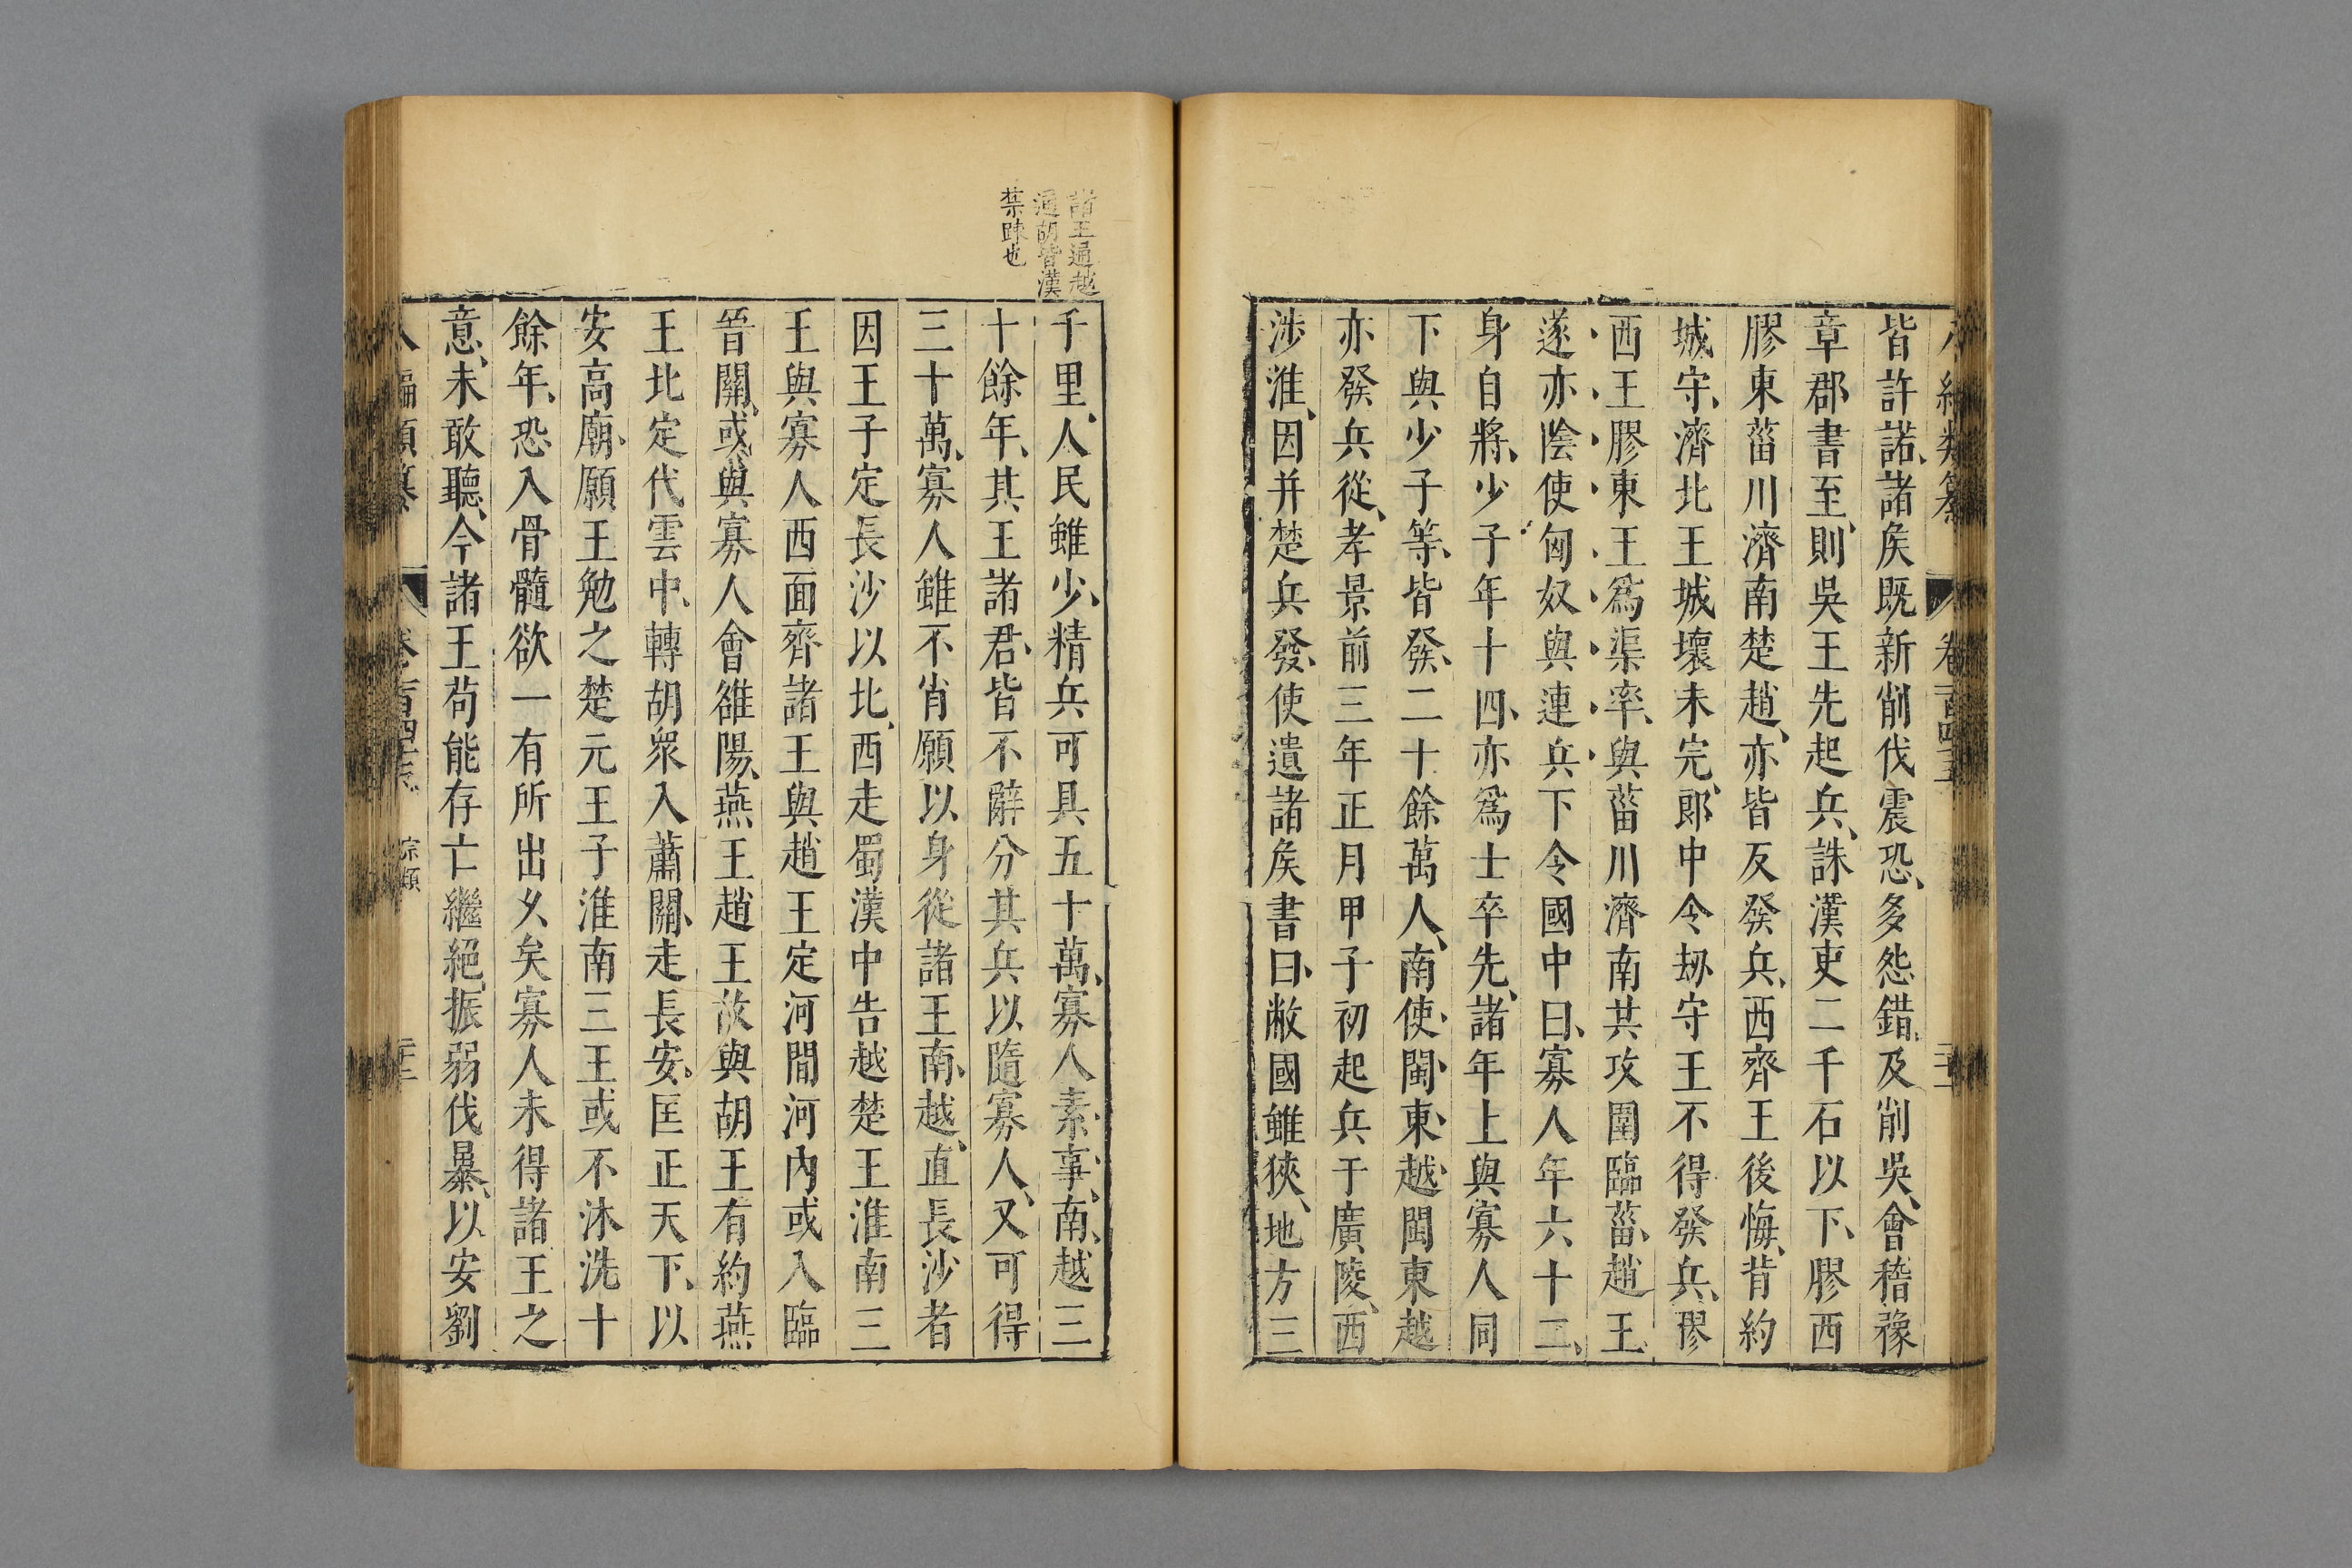 皆許諾、諸矦既新削伐震恐、多怨錯、及削吳、會稽豫
章郡書至、則吳王先起兵、誅漢吏二千石以下、膠西
膠東菑川濟南楚趙、亦皆反發兵、西齊王後悔、背約
城守、濟北王城壞未完、郎中令刼守王不得發兵、膠
西王膠東王爲渠率、與菑川濟南共攻圍臨菑、趙王
遂亦陰使匈奴與連兵下令國中曰、寡人年六十二、
身自將、少子年十四、亦爲士卒先、諸年上與寡人同
下與少子等、皆發、二十餘萬人、南使閩東越閩東越
亦發兵從、孝景前三年正月甲子初起兵于廣陵、西
涉淮、因并楚兵發、使遺諸矦書曰、敝國雖狹、地方三
諸王通越
通胡皆漢
禁疎也
千里、人民雖少、精兵可具五十萬、寡人素事、南、越三
十餘年、其王諸君、皆不辭分其兵以隨寡人、又可得
三十萬、寡人雖不肖願以身從諸王南、越、直長沙者
因王子定長沙以北、西走蜀漢中告越楚王淮南三
王與寡人西面齊諸王與趙王定河間河內或入臨
晉關、或與寡人會雒陽、燕王趙王故與胡王有約燕
王北定代雲中、轉胡衆入蕭關、走長安、匡正天下、以
安高廟、願王勉之楚元王子淮南三王或不沐洗十
餘年、恐入骨髓欲一有所出久矣寡人未得諸王之
意、未敢聽、今諸王苟能存亡繼絕、振弱伐暴、以安劉